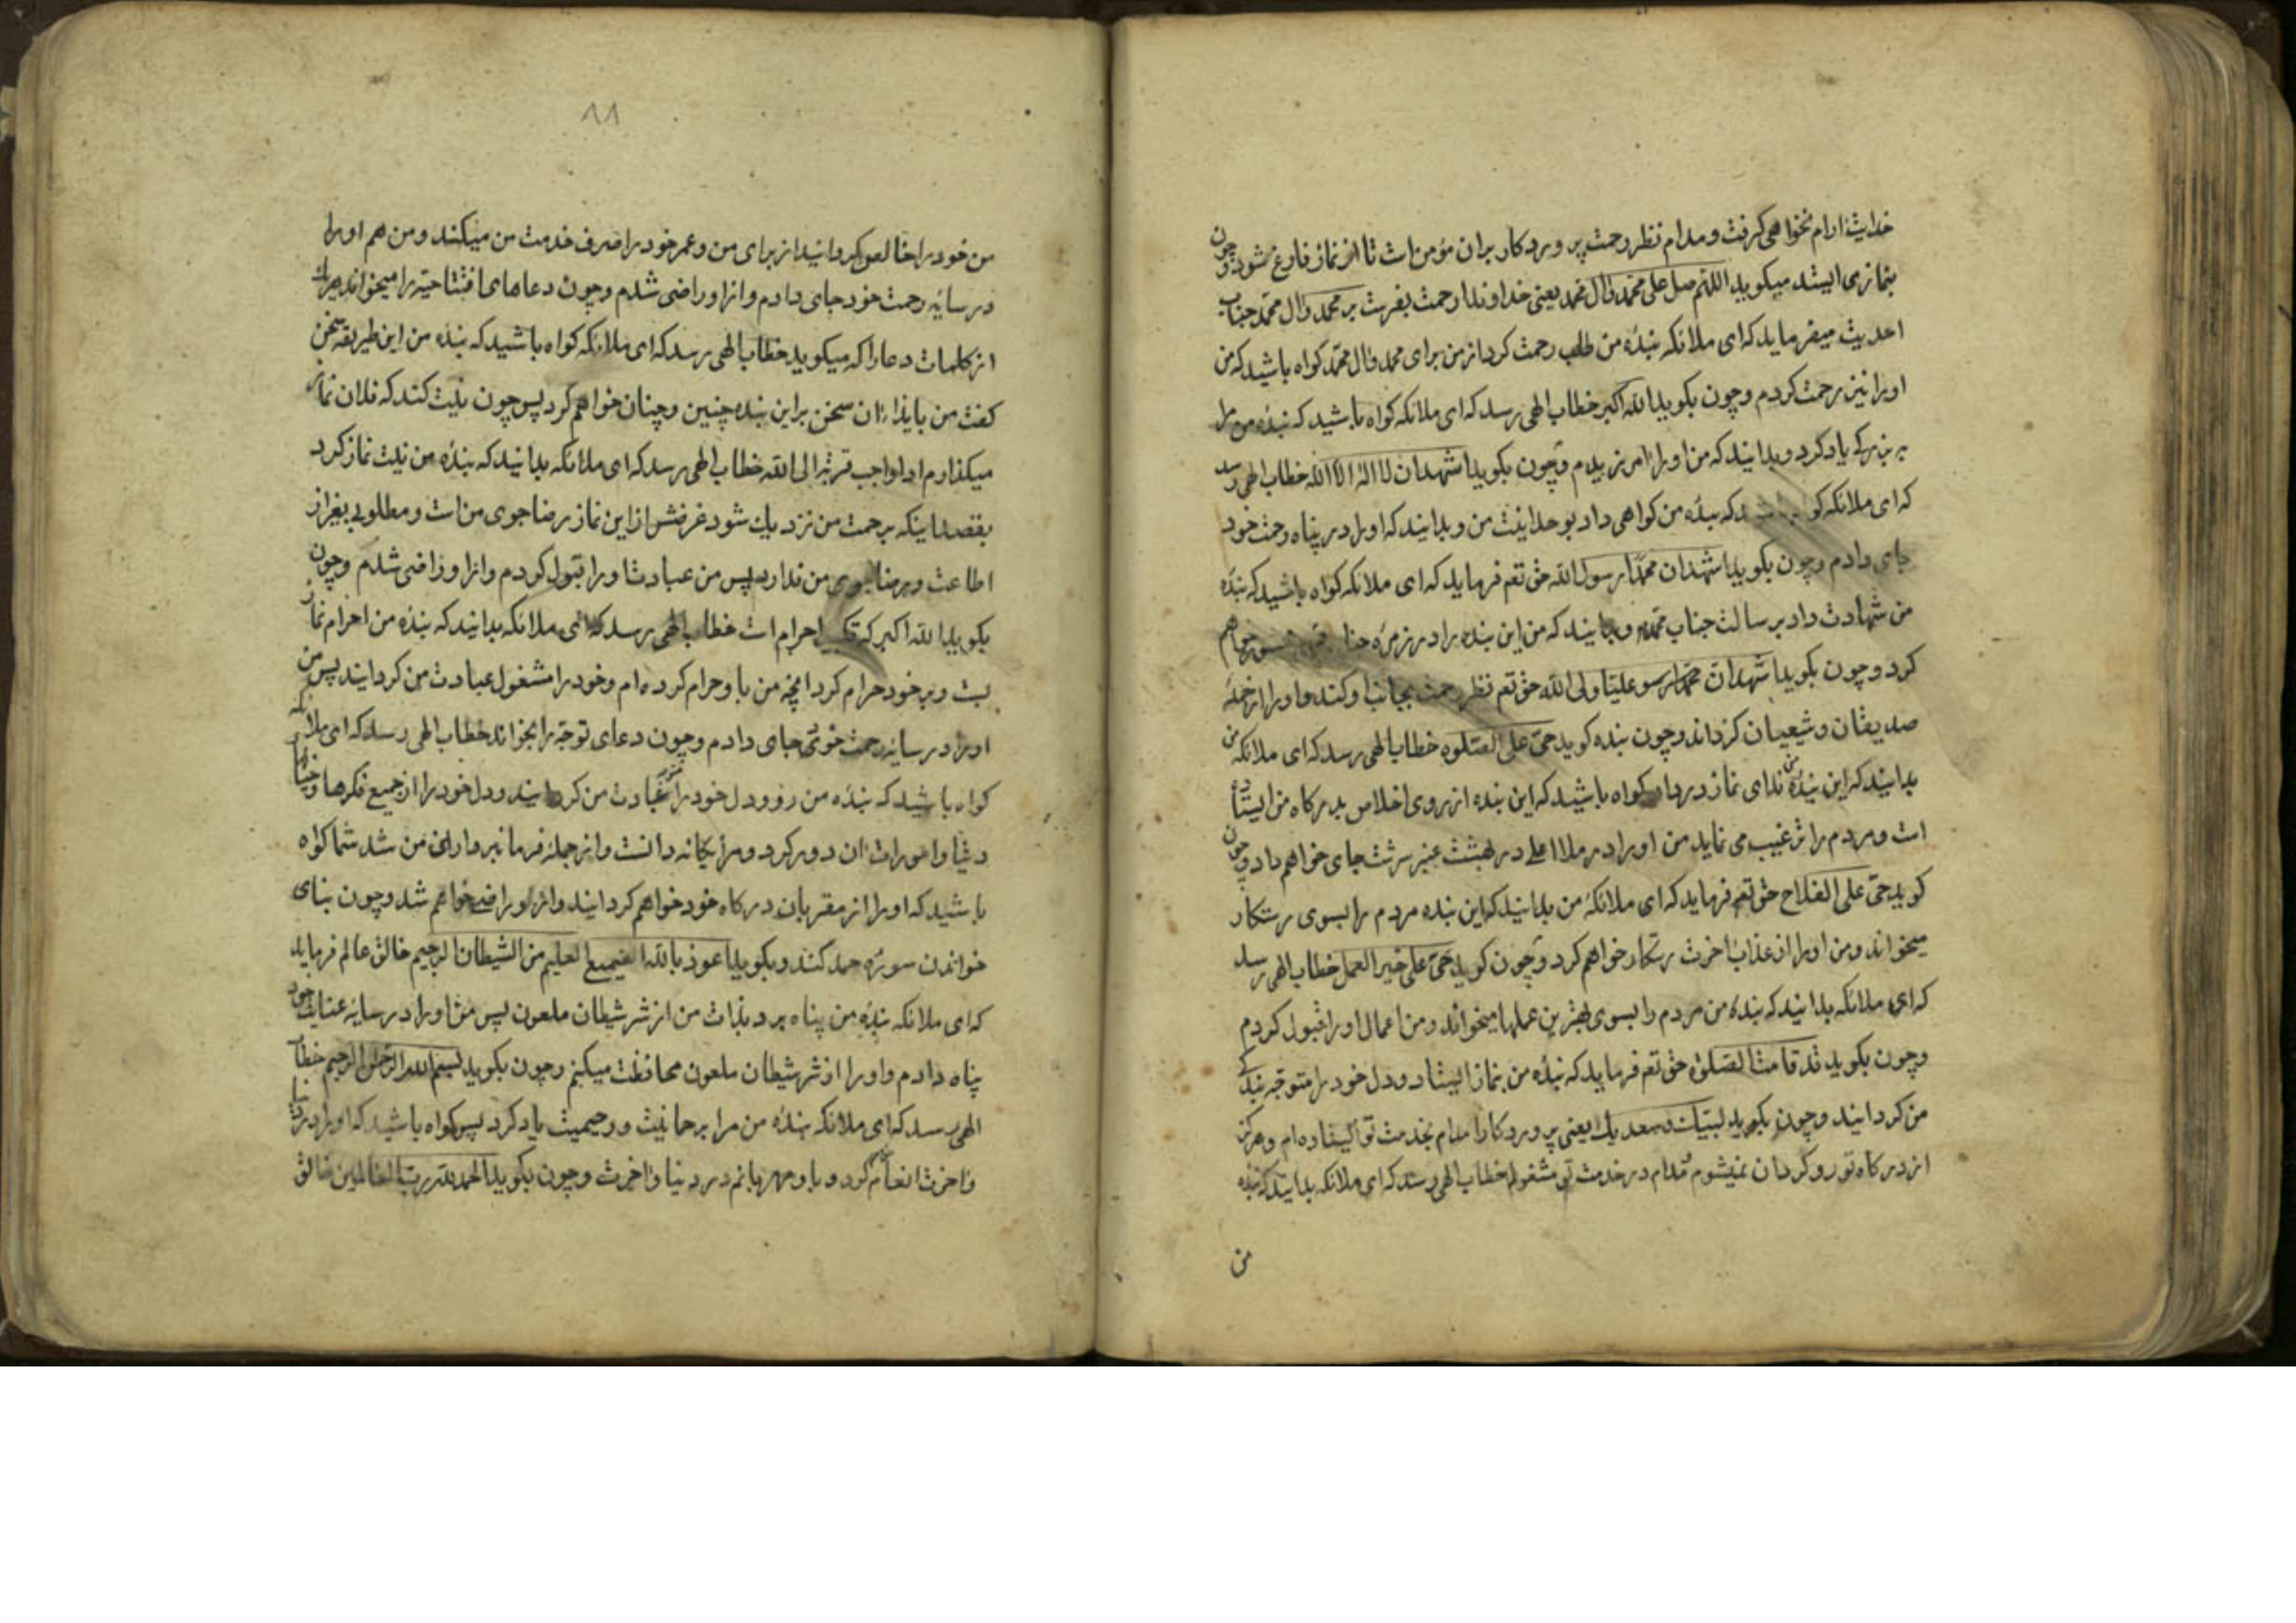 خدایت ارام نخواهی کرفت و مدام نظر رحمت پروردکار بران مؤمن است تا از نماز فارغ شود و چون
بنمازی ایستد میکوید اللهم صل علی محمد وال محمد یعنی خداوندا رحمت بفرست بر محمد وال محمد جناب
احدیت میفرماید که ای ملائکه بندۀ من طلب رحمت کرد از من برای محمد وال محمد کواه باشید که من
اورا نیز رحمت کردم و چون بکوید الله اکبر خطاب الهی رسد که ای ملائکه کواه باشید که بندۀ من مرا
ببزرکی یاد کرد و بدانید که من اورا امرزیدم و چون بکوید اشهد ان لا اله الا الله خطاب الهی رسد
که ای ملائکه کواه باشید که بندۀ من کواهی داد بوحدانیت من و بدانید که اورا در پناه رحمت خود
جای دادم و چون بکوید اشهد ان محمدا رسول الله حق تعم فرماید که ای ملائکه کواه باشید که بندۀ
من شهادت داد برسالت جناب محمد و بدانید که من این بنده را در زمرۀ خواهم
کرد و چون بکوید اشهد ان محمدا رسو علیا ولی الله حق تعم نظر رحمت بجانب او کند و اورا از جمله
صدیقان و شیعیان کرداند و چون بنده کوید حی علی الصلوه خطاب الهی رسد که ای ملائکه من
بدانید که این بندۀ من ندای نماز در داد کواه باشید که این بنده از روی اخلاص بدرکاه من ایستاده
است و مردم را ترغیب می نماید من اورا در ملا اعلی در بهشت عنبر سرشت جای خواهم داد و چون
کوید حی علی الفلاح حق تعم فرماید که ای ملائکۀ من بدانید که این بنده مردم را بسوی رستکار
میخواند و من اورا از عذاب اخرت رستکار خواهم کرد و چون کوید حی علی خیر العمل خطاب الهی رسد
که ای ملائکه بدانید که بندۀ من مردم را بسوی بهترین عملها میخواند و من اعمال اورا قبول کردم
و چون بکوید قد قامت الصلوة حق تعم فرماید که بندۀ من بنماز ایستاد و دل خود را متوجه بندکی
من کردانید و چون بکوید لبیک و سعدیک یعنی پروردکارا مدام بخدمت تو ایستاده ام و هرکز
از درکاه تو رو کردان نمیشوم مدام در خدمت تو مشغولم خطاب الهی رسد که ای ملائکه بدانید که بنده
من
۱۱
من خود را خالص کردانید از برای من و عمر خود را صرف خدمت من میکند و من هم اورا
در سایه رحمت خود جای دادم و از او راضی شدم و چون دعاهای افتتاحیه را میخواند هریک
از کلمات دعا را که میکوید خطاب الهی رسد که ای ملائکه کواه باشید که بنده من این طریقه سخن
کفت من بایذاء ان سخن براین بنده چنین و چنان خواهم کرد پس چون نیت کند که فلان نماز
میکذارم ادا واجب قربة الی الله خطاب الهی رسد که ای ملائکه بدانید که بندۀ من نیت نماز کرد
بقصد اینکه برحمت من نزدیک شود غرضش از این نماز رضا جوی من است و مطلوبی بغیر از
اطاعت و رضا جوی من ندارد پس من عبادت اورا قبول کردم و از او راضی شدم و چون
بکوید الله اکبر که تکبیر احرام است خطاب الهی رسد که ای ملائکه بدانید که بندۀ من احرام نماز
بست و بر خود حرام کرد انچه من باو حرام کرده ام و خود را مشغول عبادت من کردانید پس من
اورا در سایه رحمت خود جای دادم و چون دعای توجه را بخواند خطاب الهی رسد که ای ملائکه
کواه باشید که بندۀ من رو و دل خود را عبادت من کردانید و دل خود را از جمیع فکرها و خیال
دنیا و امورات ان دور کرد و مرا یکانه دانست و از جمله فرمانبرداران من شد شما کواه
باشید که اورا از مقربان درکاه خود خواهم کردانید و از او راضی خواهم شد و چون بنای
خواندن سورۀ حمد کند و بکوید اعوذ بالله السمیع العلیم من الشیطان الرجیم خالق عالم فرماید
که ای ملائکه بندۀ من پناه برد بذات من از شر شیطان ملعون پس من اورا در سایۀ عنایت خود
پناه دادم و اورا از شر شیطان ملعون محافظت میکنم و چون بکوید بسم الله الرحمن الرحیم خطاب
الهی رسد که ای ملائکه بندۀ من مرا برحمانیت و رحیمیت یاد کرد پس کواه باشید که اورا در دنیا
و اخرت انعام کرد و با و مهربانم در دنیا و اخرت و چون بکوید الحمد لله رب العالمین خالق